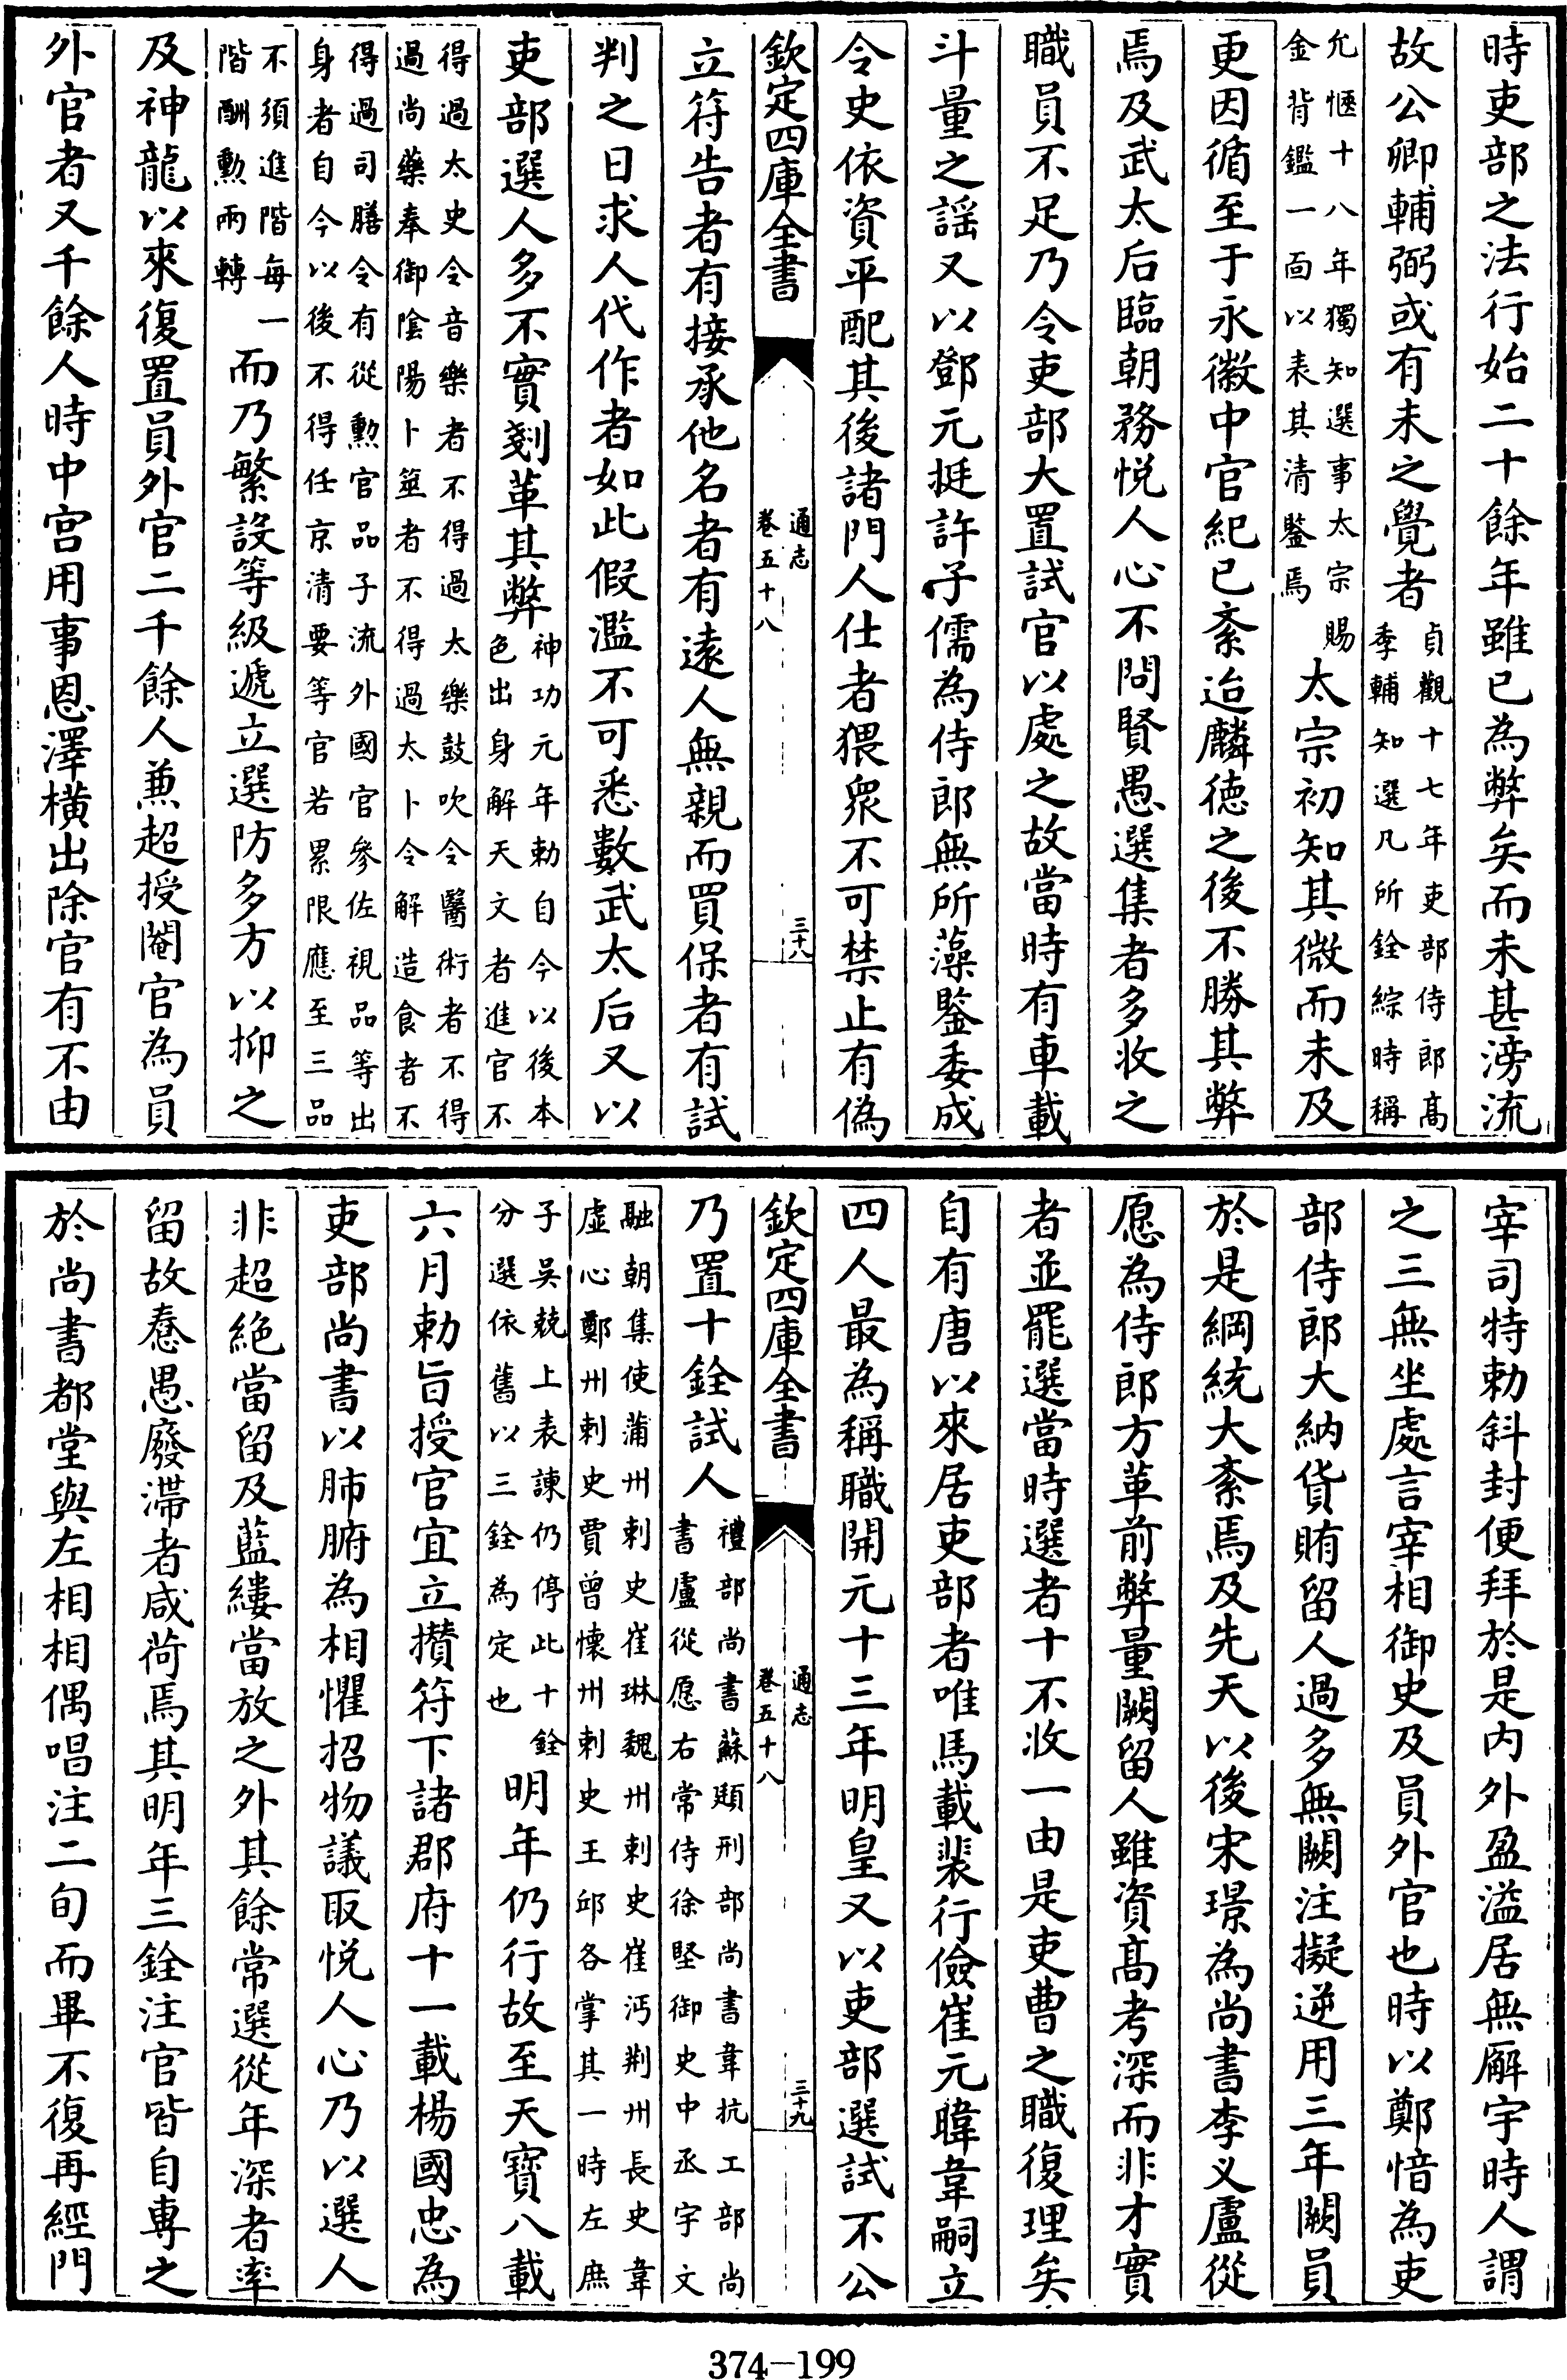 時吏部之法行始二十餘年雖已為弊矣而未甚滂流
故公卿輔弼或有未之覺者貞觀十七年吏部侍郎髙
季輔知選凡所銓綜時稱
允愜十八年獨知選事太宗賜
金背鑑一面以表其清鑒焉太宗初知其微而未及
更因循至于永徽中官紀已紊迨麟徳之後不勝其弊
焉及武太后臨朝務悦人心不問賢愚選集者多收之
職員不足乃令吏部大置試官以處之故當時有車載
斗量之謡又以鄧元挺許子儒為侍郎無所藻鑒委成
令史依資平配其後諸門人仕者猥衆不可禁止有偽
欽定四庫全書
通志
卷五十八
三十八
立符告者有接承他名者有逺人無親而買保者有試
判之日求人代作者如此假濫不可悉數武太后又以
吏部選人多不實剗革其弊神功元年勅自今以後本
色出身解天文者進官不
得過太史令音樂者不得過太樂鼓吹令醫術者不得
過尚藥奉御陰陽卜筮者不得過太卜令解造食者不
得過司膳令有從勲官品子流外國官參佐視品等出
身者自今以後不得任京清要等官若累限應至三品
不須進階每一
階酬勲兩轉而乃繁設等級遞立選防多方以抑之
及神龍以來復置員外官二千餘人兼超授閹官為員
外官者又千餘人時中宫用事恩澤横出除官有不由
宰司特勅斜封便拜於是内外盈溢居無廨宇時人謂
之三無坐處言宰相御史及員外官也時以鄭愔為吏
部侍郎大納貨賄留人過多無闕注擬逆用三年闕員
於是綱統大紊焉及先天以後宋璟為尚書李乂盧從
愿為侍郎方革前弊量闕留人雖資髙考深而非才實
者並罷選當時選者十不收一由是吏曹之職復理矣
自有唐以來居吏部者唯馬載裴行儉崔元暐韋嗣立
四人最為稱職開元十三年明皇又以吏部選試不公
欽定四庫全書
通志
卷五十八
三十九
乃置十銓試人禮部尚書蘇頲刑部尚書韋抗工部尚
書盧從愿右常侍徐堅御史中丞宇文
融朝集使蒲州刺史崔琳魏州刺史崔沔荆州長史韋
虚心鄭州刺史賈曾懷州刺史王邱各掌其一時左庶
子吳兢上表諫仍停此十銓
分選依舊以三銓為定也明年仍行故至天寶八載
六月勅旨授官宜立攢符下諸郡府十一載楊國忠為
吏部尚書以肺腑為相懼招物議取悦人心乃以選人
非超絶當留及藍縷當放之外其餘常選從年深者率
留故惷愚廢滯者咸荷焉其明年三銓注官皆自專之
於尚書都堂與左相相偶唱注二旬而畢不復再經門
374—199